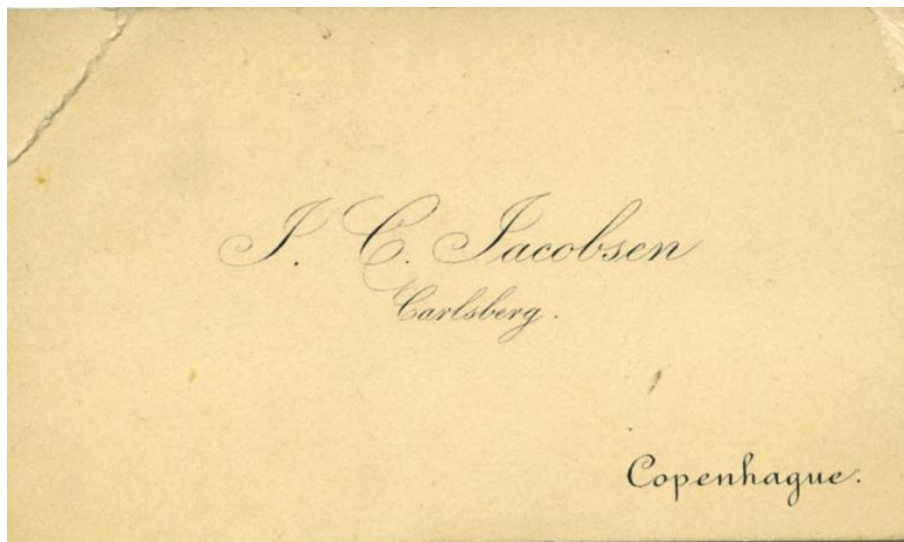 J. C. Jacobsen
Carlsberg.
Copenhague.